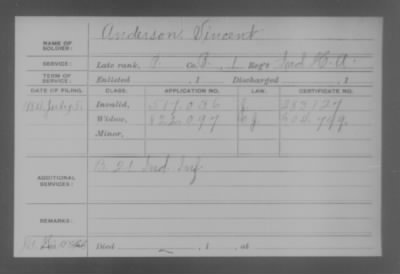 Anderson, Vincent
NAME OF SOLDIER:
SERVICE: Late rank, P. Co. , 1 Reg't Ind H.A.
TERM OF SERVICE: Enlisted , 1 Discharged , 1
DATE OF FILING. CLASS. APPLICATION NO. LAW. CERTIFICATE NO.
1884 July 5. Invalid, 517.036 283127
Widow, 822.097 604.749
Minor,
ADDITIONAL SERVICES: B. 21 Ind. Inf
REMARKS:
Died , 1 , at